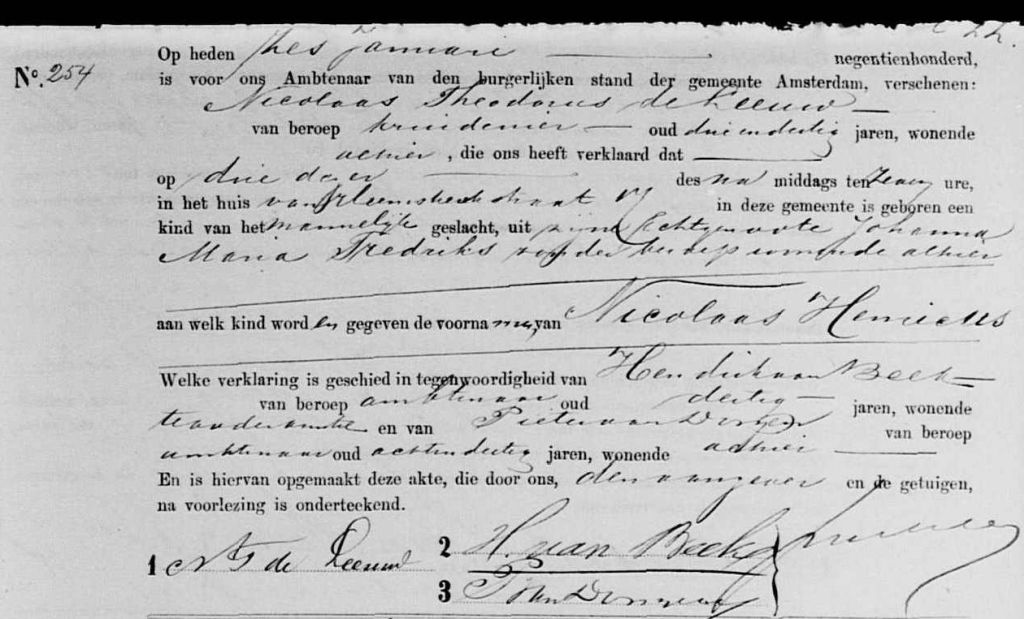 Op heden zes Januari negentienhonderd,
No. 254 is voor ons Ambtenaar van den burgerlijken stand der gemeente Amsterdam, verschenen:
Nicolaas Theodorus de Leeuw
van beroep kruidenier oud drie en dertig jaren, wonende
alhier, die ons heeft verklaard dat
op drie dezer des na middags ten zeven ure,
in het huis van straat in deze gemeente is geboren een
kind van het mannelijk geslacht, uit zijne Echtgenoote Johanna
Maria Fredriks zonder beroep wonende alhier
aan welk kind worden gegeven de voornamen, van Nicolaas Henricus
Welke verklaring is geschied in tegenwoordigheid van Hendrik van Beek
van beroep ambtenaar oud dertig jaren, wonende
en van Pieter van Dongen van beroep
ambtenaar oud acht en dertig jaren, wonende alhier
En is hiervan opgemaakt deze akte, die door ons, den aangever en de getuigen,
na voorlezing is onderteekend.
1 N T de Leeuw 2 H. van Beek
3 P van Dongen